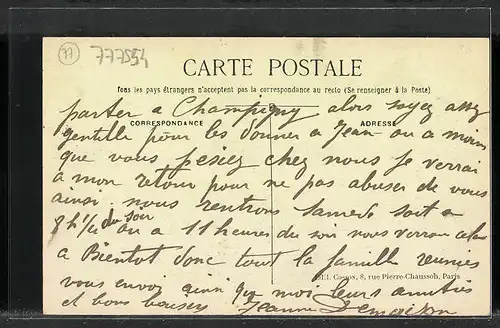 77
777554
CARTE POSTALE
Tous les pays étrangers n'acceptent pas la correspondance au recto (Se renseigner à la Poste)
CORRESPONDANCE
ADRESSE
porter a Champigny alors soyez assez
gentille pour les donner a Jean ou a moins
que vous chez nous je verrai
a mon retour pour ne pas abuser de vous
ainsi nous rentrons Samedi soit a
8h 1/4 du soir ou a 11 heures du soir nous verrons cela
a Bientot donc tout la famille reunies
vous envoy ainsi que moi leurs amities
et bons baisers Jeanne
8, rue Pierre-Chausson, Paris